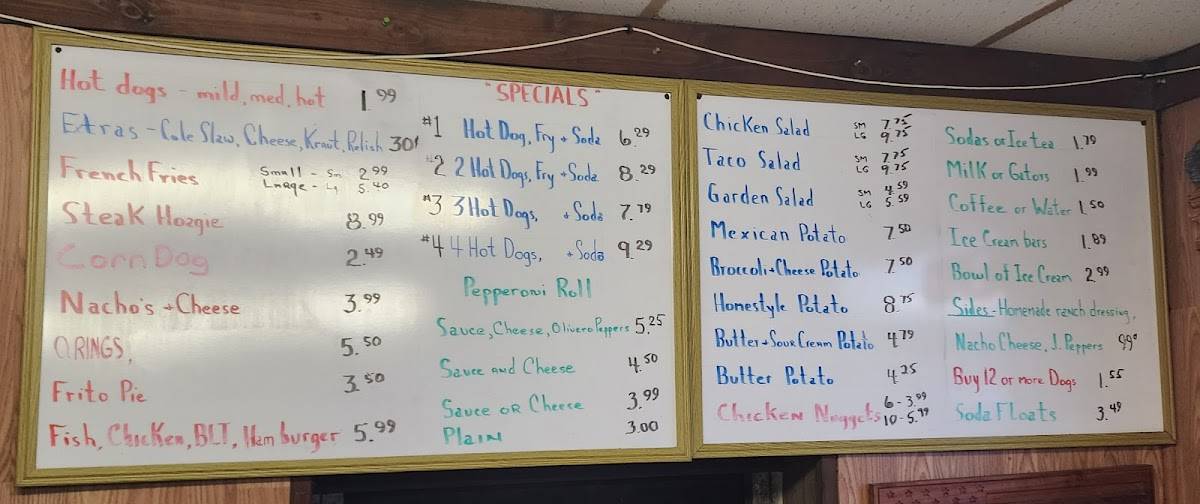 Hot dogs - mild, med, hot 1.99
Extras - Cole Slaw, Cheese, Kraut, Relish 30¢
French Fries Small - Sm 2.99
Lnage - Lg 5.40
Steak Hoagie 8.99
Corn Dog 2.49
Nacho's + Cheese 3.99
O.RINGS, 5.50
Frito Pie 3.50
Fish, Chicken, BLT, Ham burger 5.99
"SPECIALS"
#1 Hot Dog, Fry + Soda 6.29
#2 2 Hot Dogs, Fry + Soda 8.29
#3 3 Hot Dogs, + Soda 7.79
#4 4 Hot Dogs, + Soda 9.29
Pepperoni Roll
Sauce, Cheese, Olivero Peppers 5.25
Sauce and Cheese 4.50
Sauce OR Cheese 3.99
PLAIN 3.00
Chicken Salad SM 7.75
LG 9.75
Taco Salad SM 7.75
LG 9.75
Garden Salad SM 4.59
LG 5.59
Mexican Potato 7.50
Broccoli + Cheese Potato 7.50
Homestyle Potato 8.75
Butter + Sour Cream Potato 4.79
Butter Potato 4.25
Chicken Nuggets 6 - 3.99
10 - 5.99
Sodas or Ice tea 1.79
Milk or Gators 1.99
Coffee or Water 1.50
Ice Cream bars 1.89
Bowl of Ice Cream 2.99
Sides - Homemade ranch dressing,
Nacho Cheese, J. Peppers 99¢
Buy 12 or more Dogs 1.55
Soda Floats 3.49